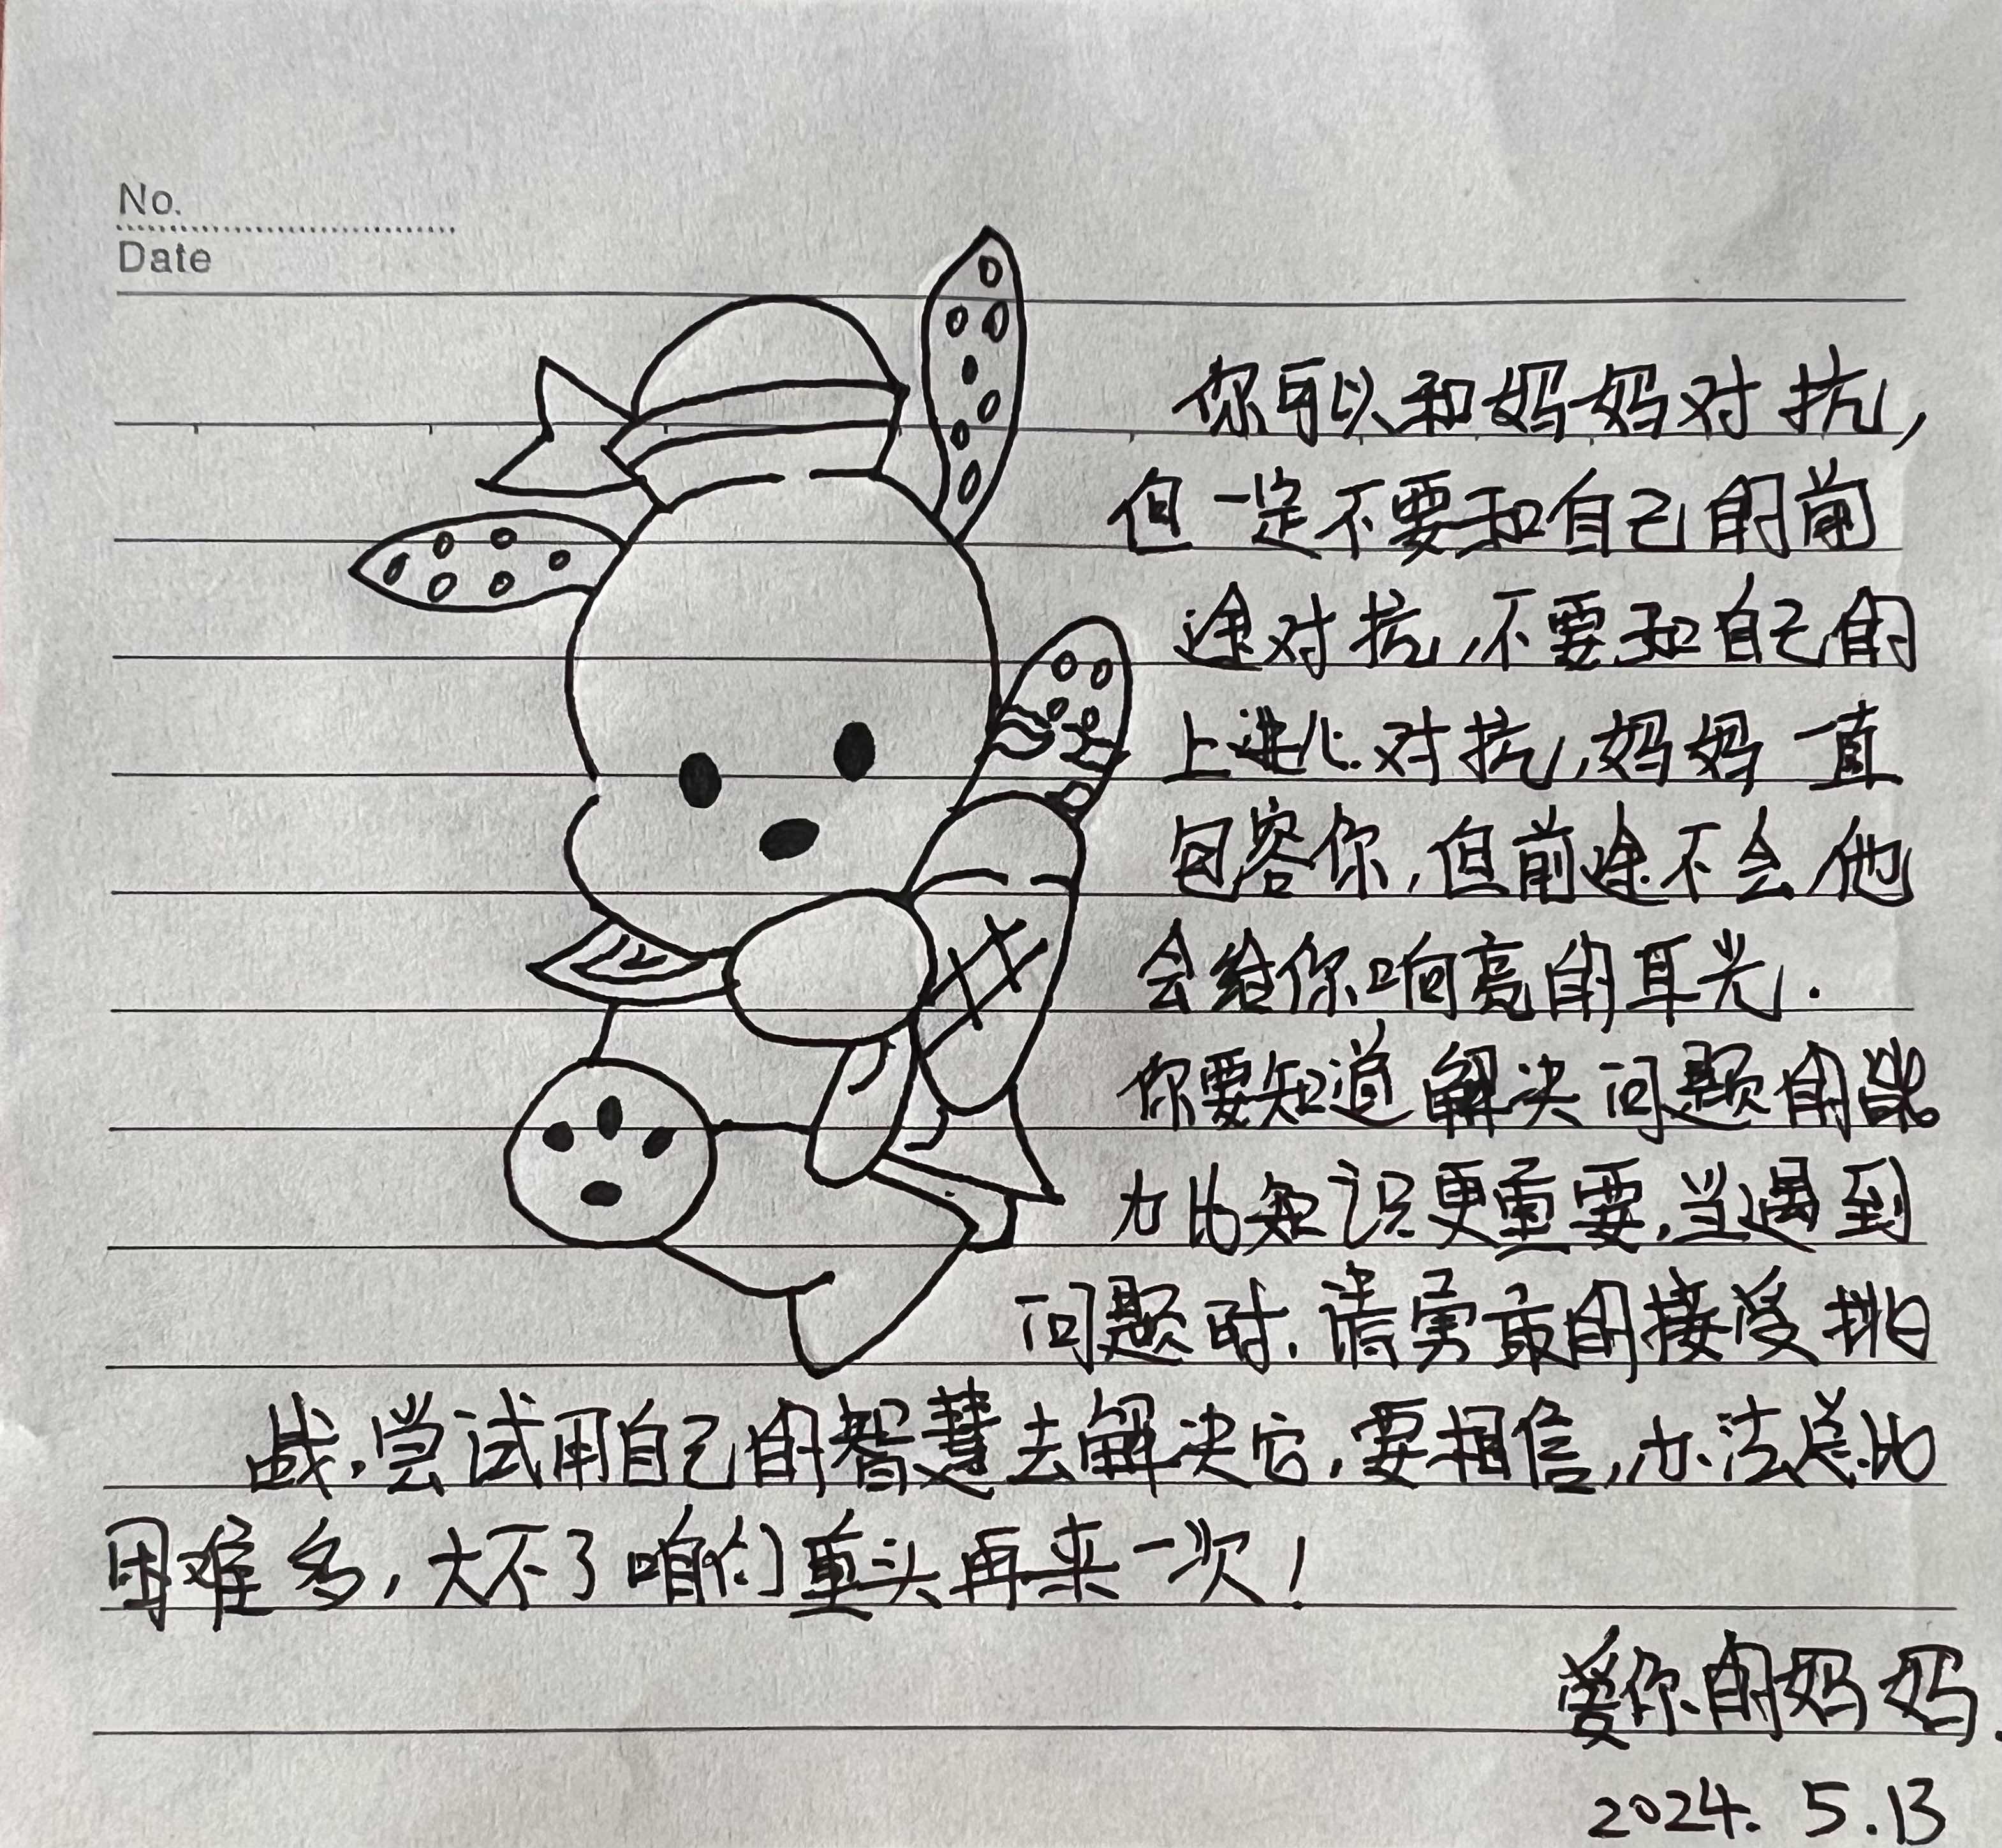 No.
Date
你可以和妈妈对抗,
但一定不要和自己的前
途对抗,不要和自己的
上进心对抗,妈妈一直
包容你,但前途不会,他
会给你响亮的耳光.
你要知道解决问题的能
力比知识更重要,当遇到
问题时.请勇敢的接受挑
战.尝试用自己的智慧去解决它,要相信,办法总比
困难多,大不了咱们重头再来一次!
爱你的妈妈.
2024. 5.13